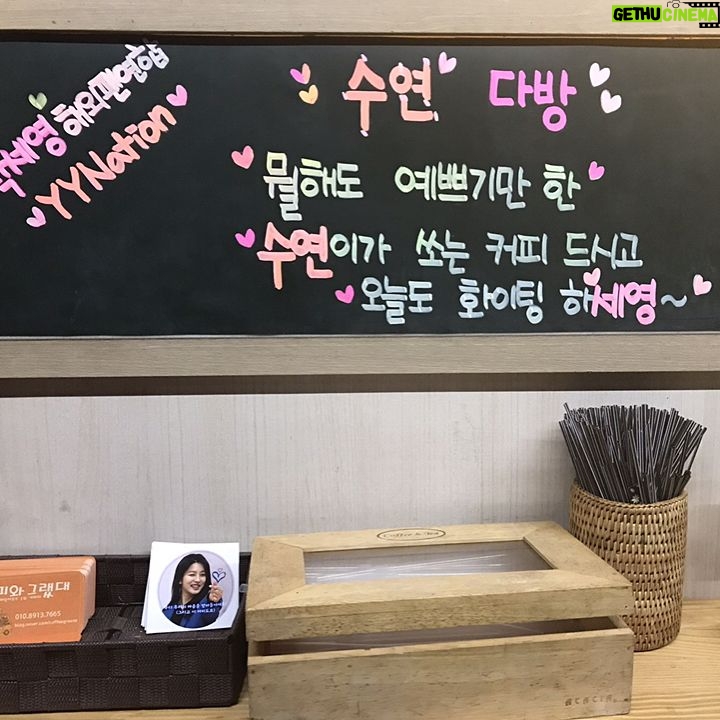 GETHUCINEMA
세영 해외팬연합
YYNation
수연 다방
뭘해도 예쁘기만 한
수연이가 쏘는 커피 드시고
오늘도 화이팅 해세영~
Coffee & Tea
피와 그랬대
010.8913.7665
ACACIA